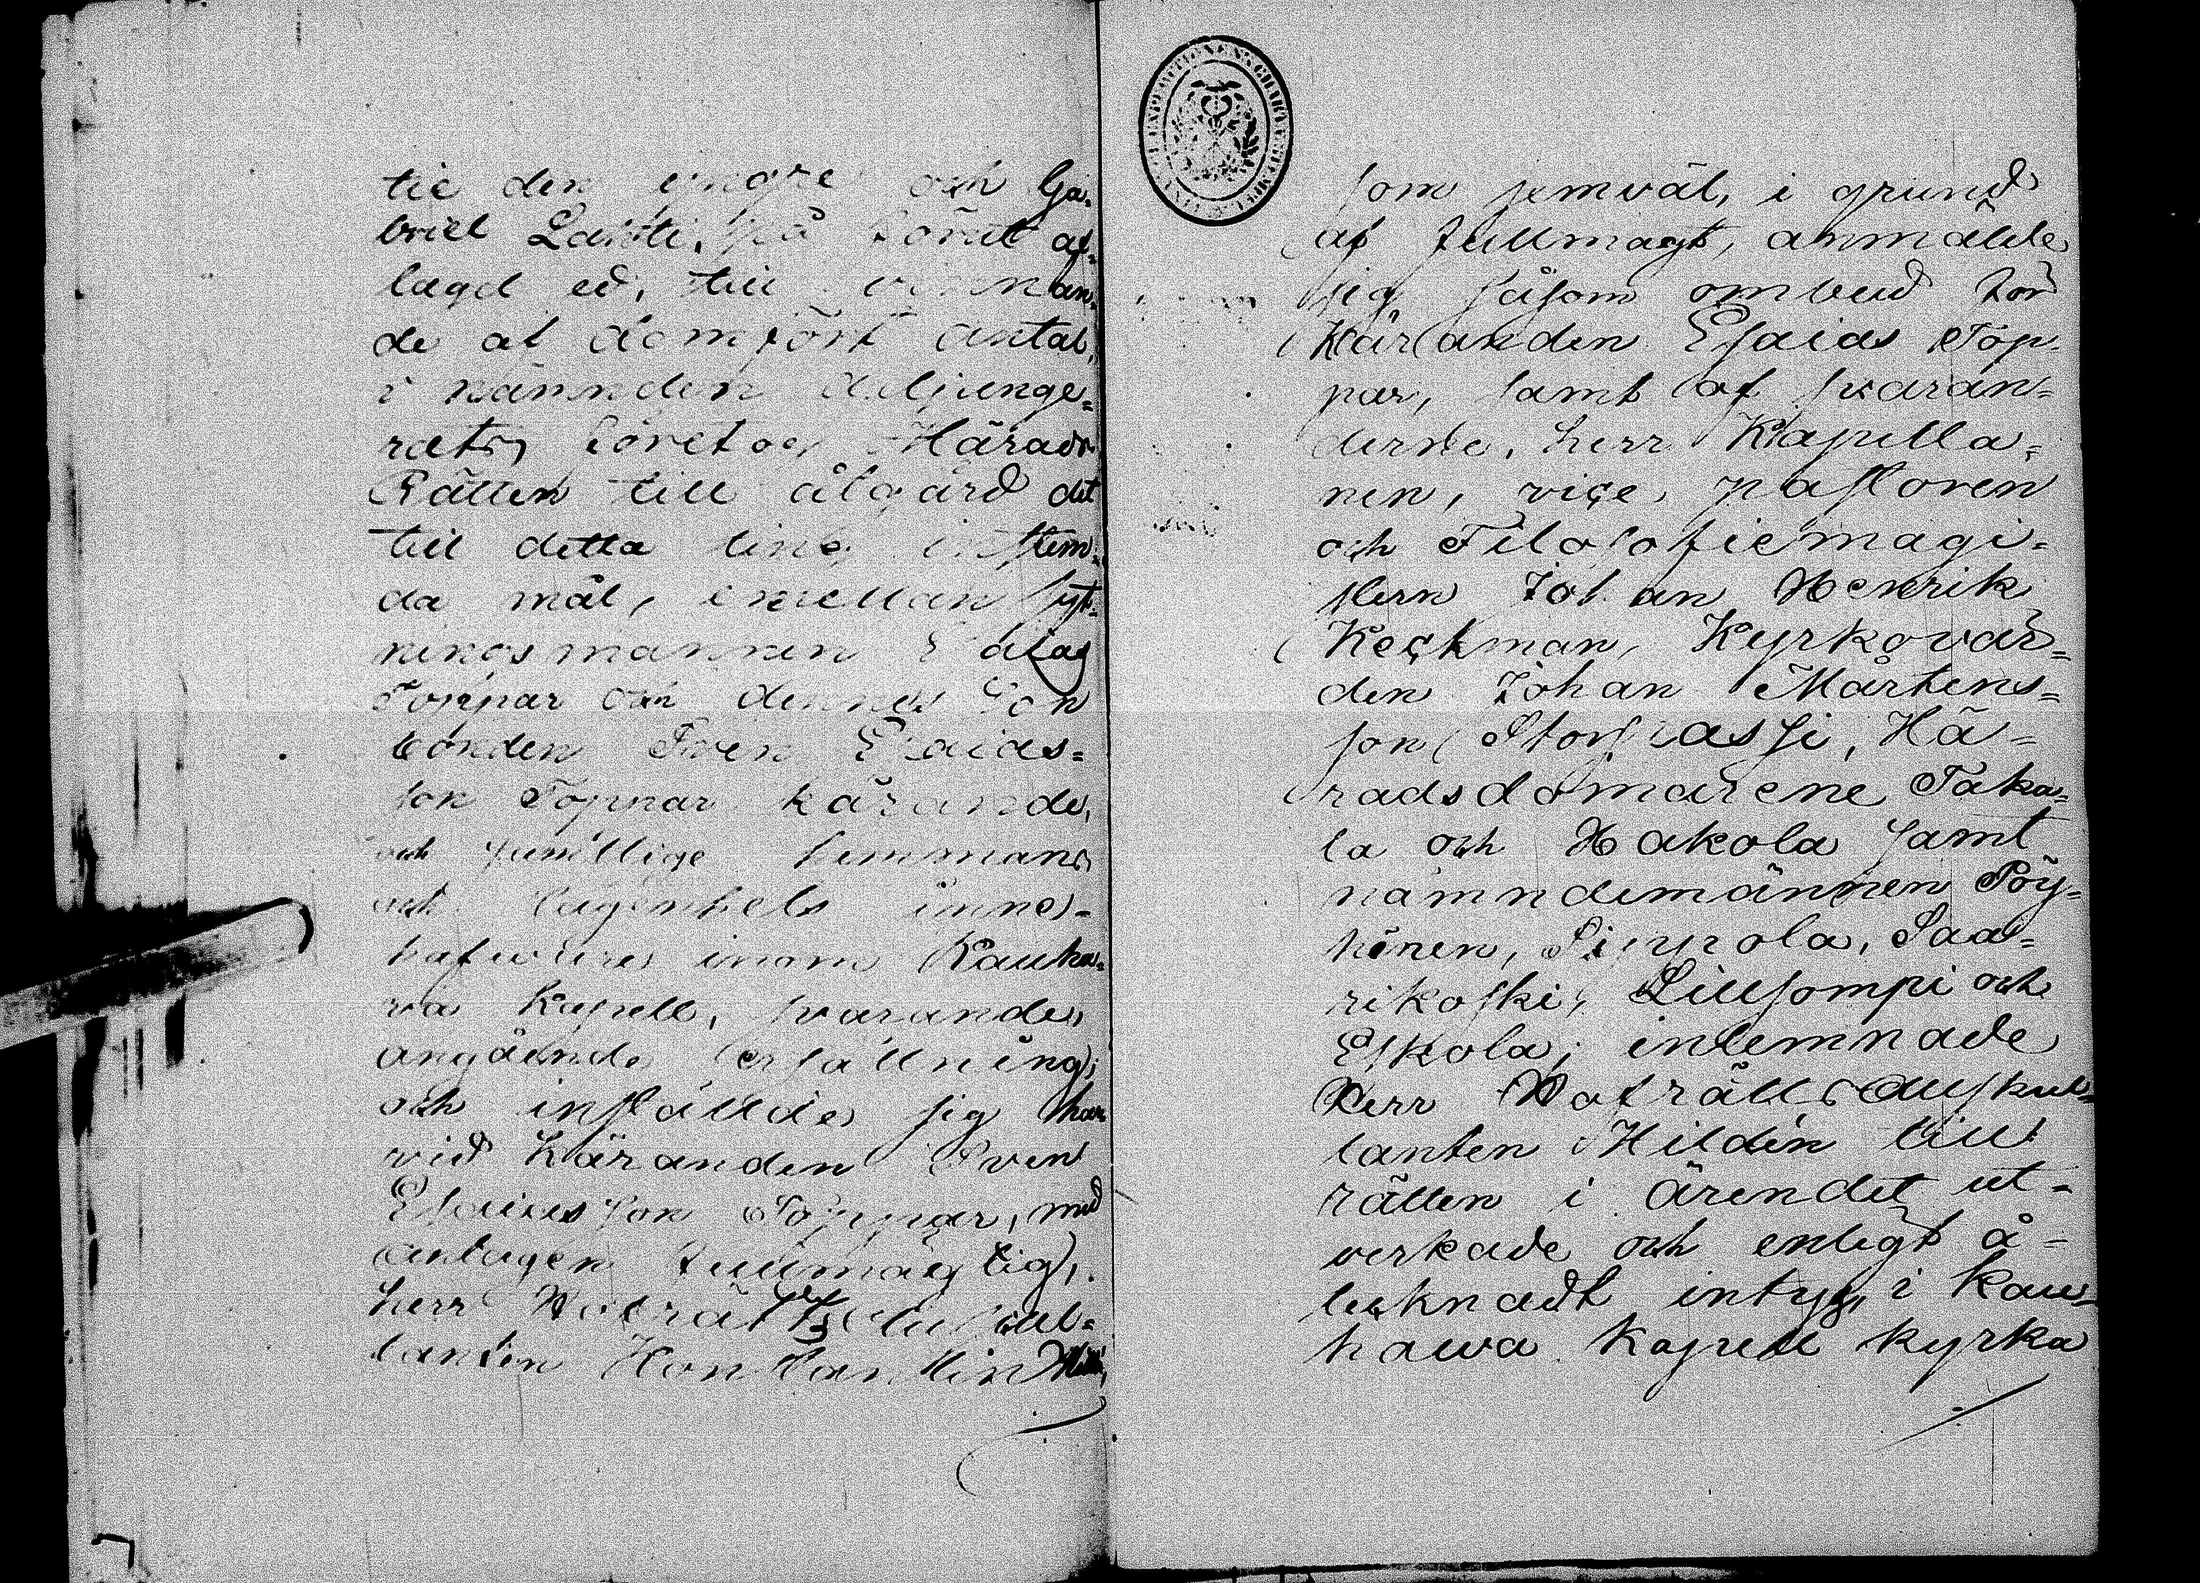 tie den yngre och Ga=
briel Lahti, på förut af=
lagd ed, till vinnan=
de af domfört antal,
i nämnden adjunge=
rats, företog Härads
Rätten till åtgärd det
till detta ting instem=
da mål, emellan Syt=
ningsmannen Esaias
Toppar och dennes Son
bonden Sven Esaias=
son Toppar kärande,
och samtlige hemmans
och lägenhets inne=
hafware inom Kauha=
va Kapell, svarande,
angående ersättning;
och inställde sig här
vid Käranden Sven
Esaiasson Toppar, med
antagen fullmägtig,
herr Hofrätts Auskul=
tanten Konstantin
som jemväl, i grund
af fullmagt, anmälde
sig såsom ombud för
Käranden Esaias Top=
par, samt af svaran=
derne, herr Kapella=
nen, vice pastoren
och Filosofiemagi=
stern Johan Henrik
Keckman, Kyrkovär=
den Johan Mårtens=
son Storpassi, Hä=
radsdomarene Taka=
la och Hakola samt
nämndemännen Pöy=
hönen, Sippola, Saa=
rikoski, Lillsompi och
Eskola; inlemnade
Herr Hofrätts Auskul=
tanten Hildén till
rätten i ärendet ut=
verkade och enligt å=
tecknadt intyg, i Kau=
hawa Kapell kyrka